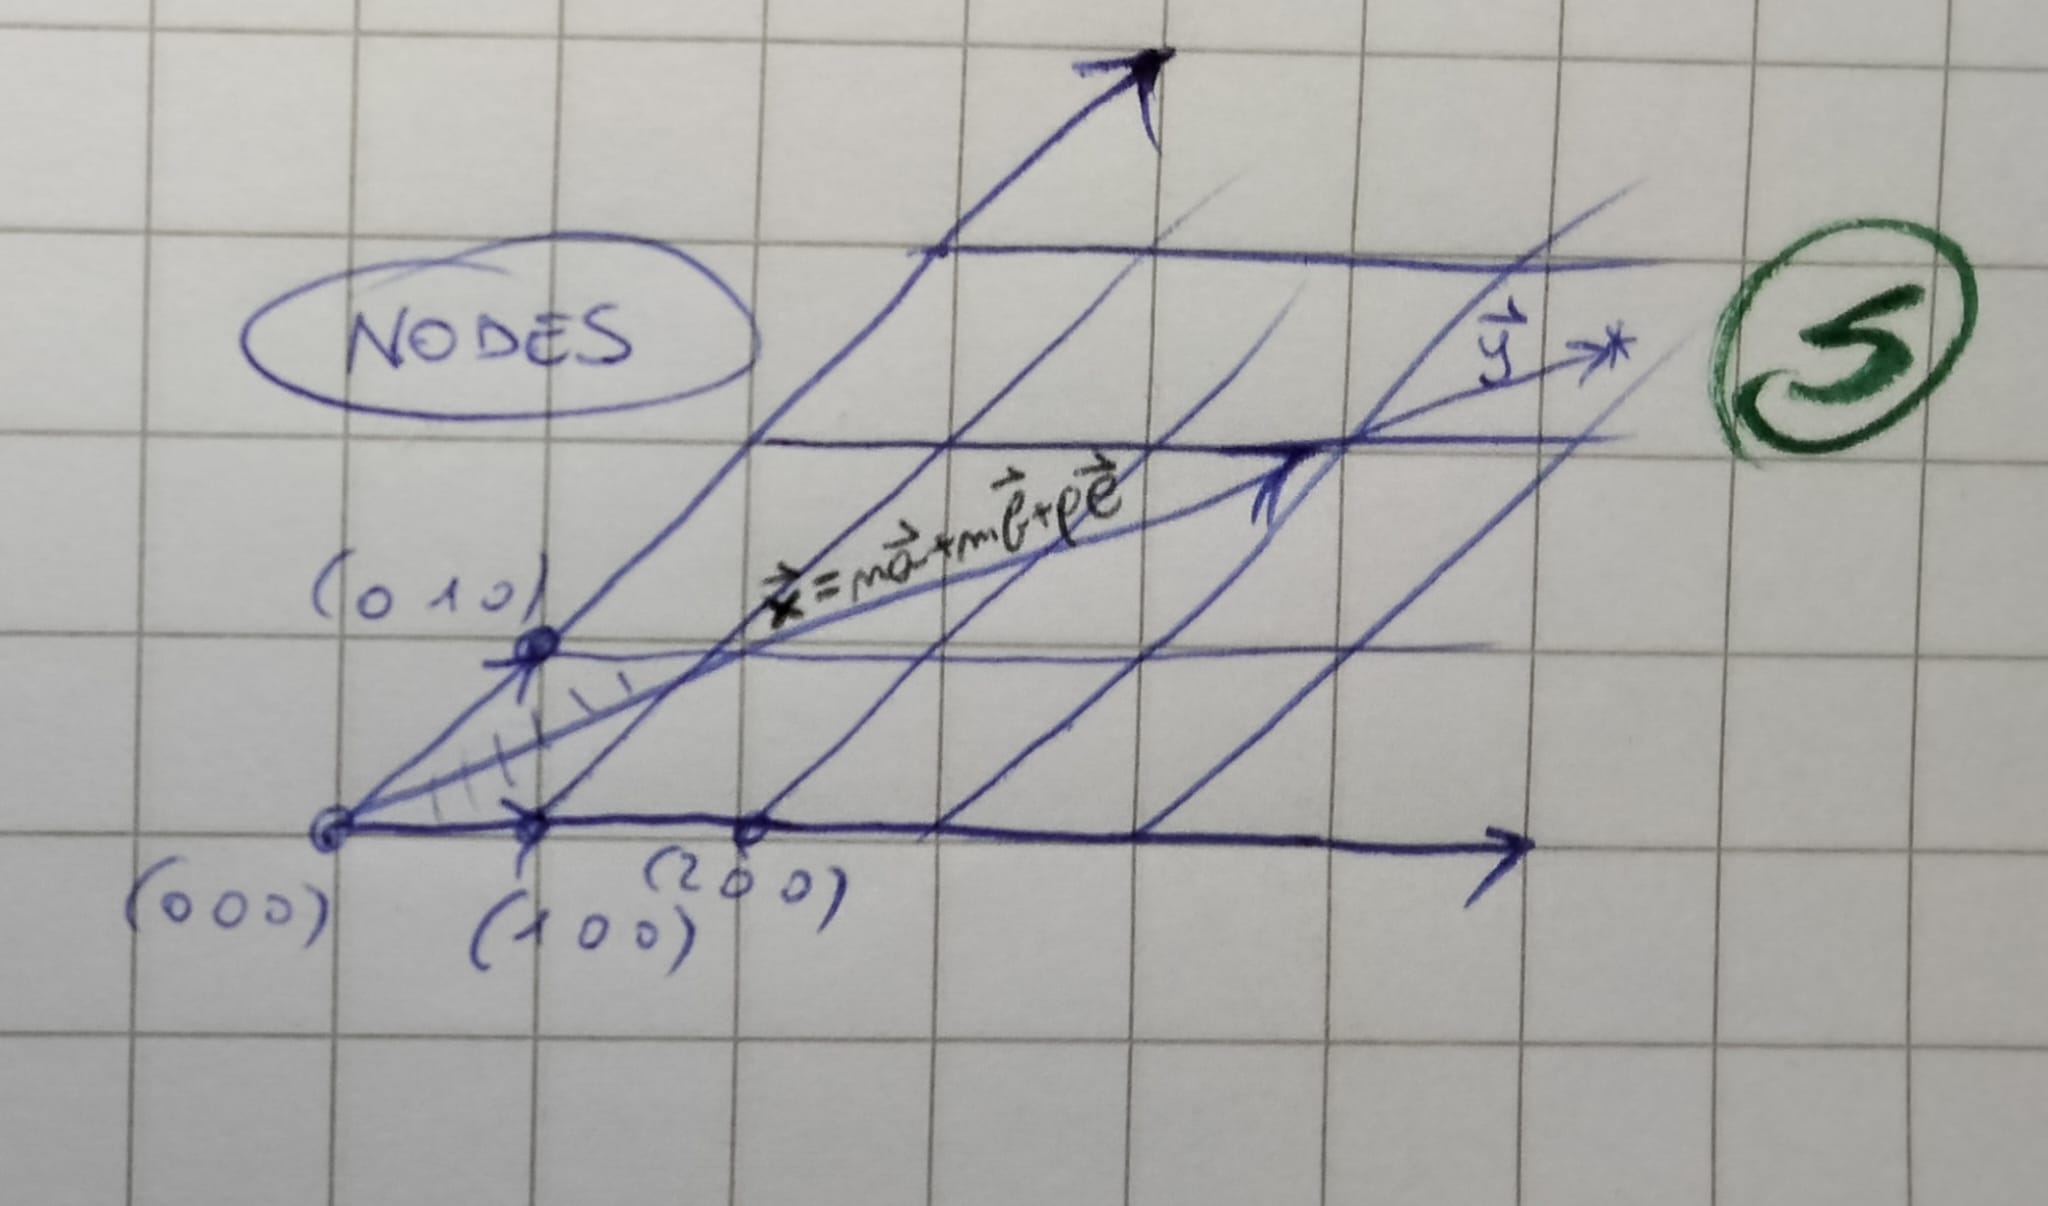 NODES
5
y⃗
x⃗ = na⃗ + mb⃗ + pc⃗
(0 1 0)
(2 0 0)
(0 0 0)
(1 0 0)